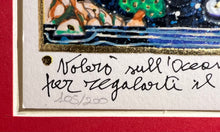 Volerò sull'Ocea
per regalarti il
100/200